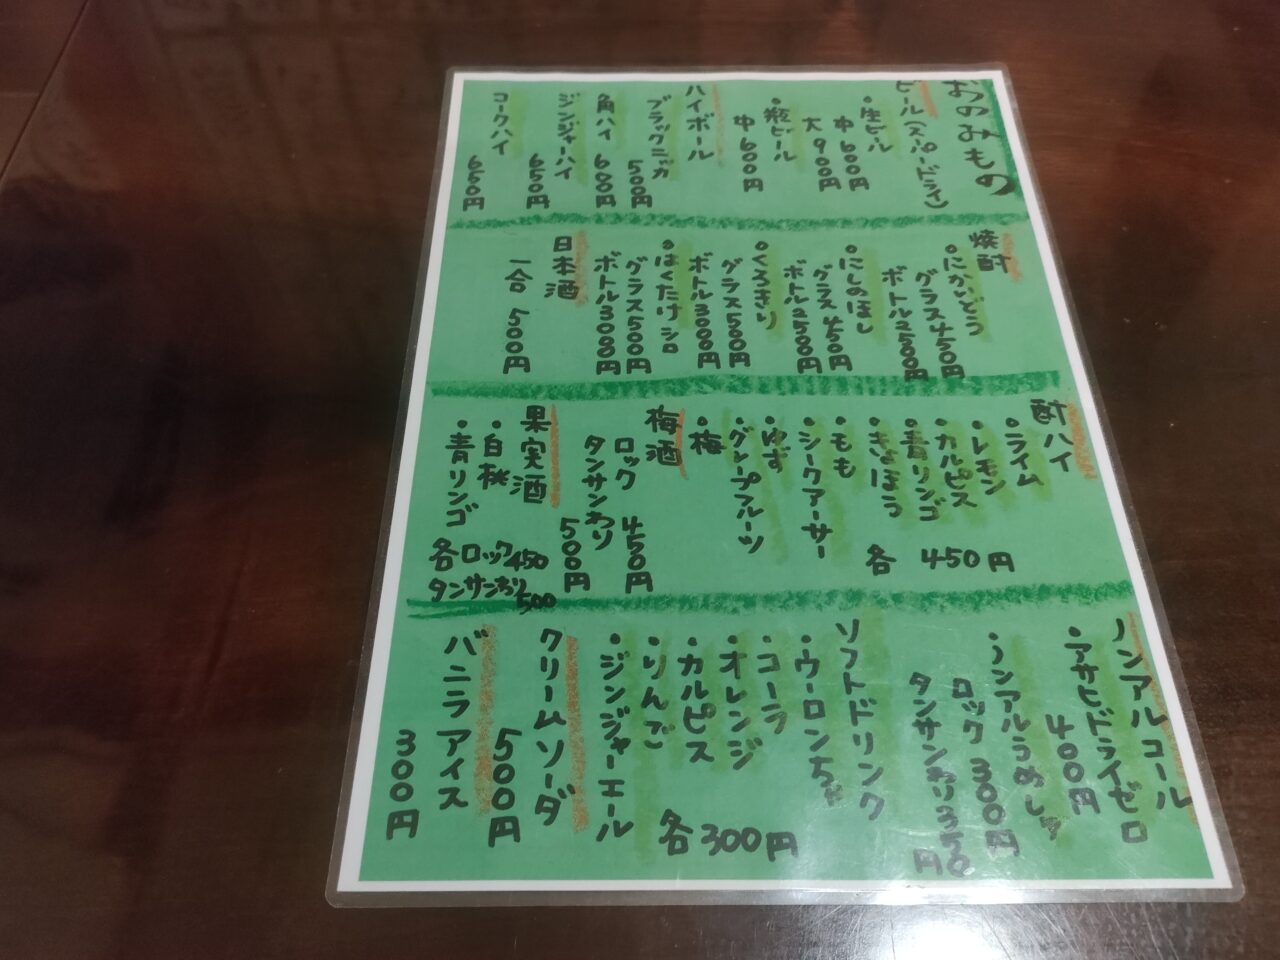 おのみもの
ビール(スーパードライ)
・生ビール
中600円
大900円
・瓶ビール
中600円
ハイボール
ブラックニッカ
500円
角ハイ
600円
ジンジャーハイ
650円
コークハイ
650円
焼酎
・にかいどう
グラス450円
ボトル2500円
・にしのほし
グラス450円
ボトル2500円
・くろきり
グラス500円
ボトル3000円
・はくたけシロ
グラス500円
ボトル3000円
日本酒
一合 500円
酎ハイ
・ライム
・レモン
・カルピス
・青リンゴ
・きょほう
・もも
・シークアーサー
・ゆず
・グレープフルーツ
・梅
各 450円
梅酒
ロック 450円
タンサンわり 500円
果実酒
・白桃
・青リンゴ
各ロック450
タンサンわり500
ノンアルコール
・アサヒドライゼロ
400円
・ノンアルうめしゅ
ロック 300円
タンサンわり350円
ソフトドリンク
・ウーロンちゃ
・コーラ
・オレンジ
・カルピス
・りんご
・ジンジャーエール
各300円
クリームソーダ
500円
バニラアイス
300円